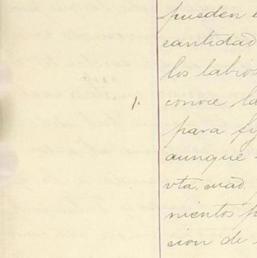 pueden
cantidad
los labios
1. conoce la
para
aunque
vta. cuad.
nientos
cion de